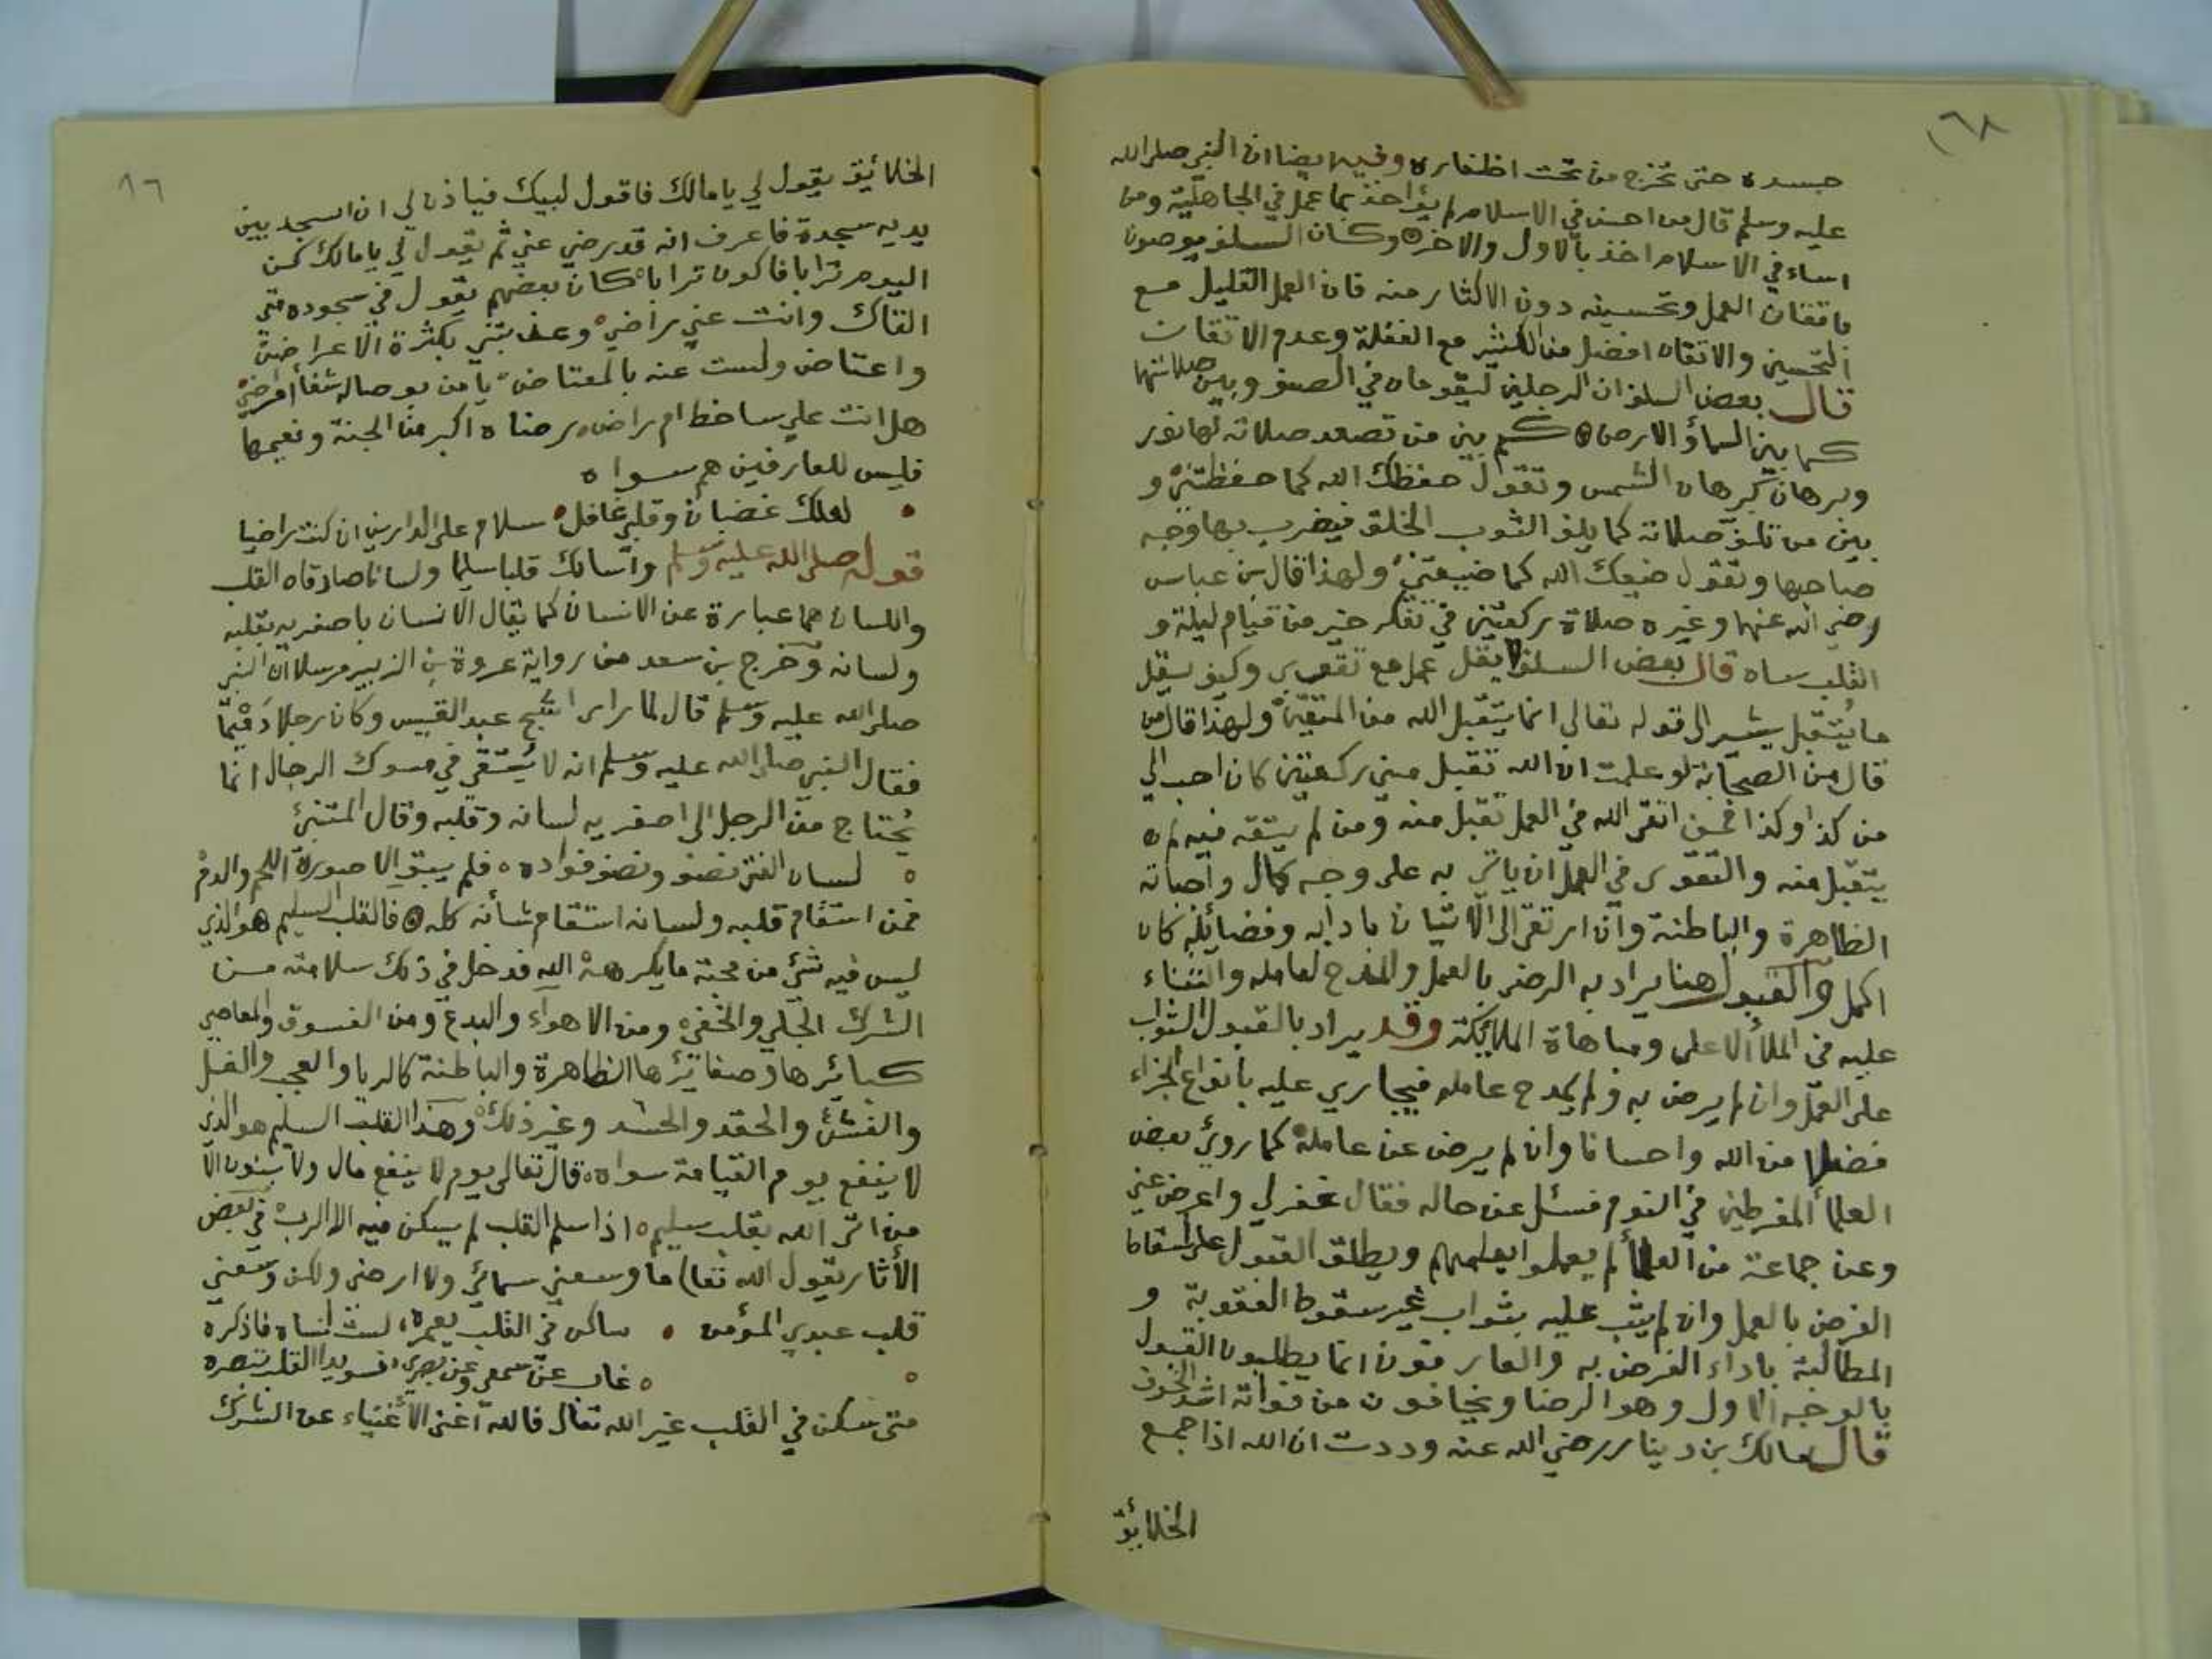 ١٦٨
جسده حتى تخرج من تحت اظفاره وفيه ايضا ان النبي صلى الله
عليه وسلم قال من احسن في الاسلام لم يؤاخذ بما عمل في الجاهلية ومن
اساء في الاسلام اخذ بالاول والاخر وكان السلف يوصون
باتقان العمل وتحسينه دون الاكثار منه فان العمل القليل مع
التحسين والاتقان افضل من الكثير مع الغفلة وعدم الاتقان
قال بعض السلف ان الرجلين ليقومان في الصف وبين صلاتهما
كما بين السماء والارض كم بين من تصعد صلاته لها نور
وبرهان كبرهان الشمس وتقول حفظك الله كما حفظتني و
بين من تلف صلاته كما يلف الثوب الخلق فيضرب بها وجه
صاحبها وتقول ضيعك الله كما ضيعتني ولهذا قال بن عباس
رضي الله عنهما وغيره صلاة ركعتين في تفكر خير من قيام ليلة و
القلب ساه قال بعض السلف لا يقل عمل مع تقوى وكيف يقل
ما يُتقبل يشير الى قوله تعالى انما يتقبل الله من المتقين ولهذا قال من
قال من الصحابة لو علمت ان الله تقبل مني ركعتين كان احب الي
من كذا وكذا فمن اتقى الله في العمل تقبل منه ومن لم يتقه فيه لم
يتقبل منه والتقوى في العمل ان ياتي به على وجه كمال واجباته
الظاهرة والباطنة وان ارتقى الى الاتيان بادابه وفضايله كان
اكمل والقبول هنا يراد به الرضى بالعمل والمدح لعامله والثناء
عليه في الملأ الاعلى ومباهاة الملايكة وقد يراد بالقبول الثواب
على العمل وان لم يرض به ولم يمدح عامله فيجازي عليه بانواع الجزاء
فضلا من الله واحسانا وان لم يرض عن عامله كما روئ بعض
العلماء المفرطين في النوم فسئل عن حاله فقال غفر لي واعرض عني
وعن جماعة من العلماء لم يعملوا بعلمهم ويطلق القبول على اسقاط
الفرض بالعمل وان لم يثب عليه بثواب غير سقوط العقوبة و
المطالبة باداء الفرض به والعارفون انما يطلبون القبول
بالوجه الاول وهو الرضا ويخافون من فواته اشد الخوف
قال مالك بن دينار رضي الله عنه وددت ان الله اذا جمع
الخلايق
الخلائق يقول لي يا مالك فاقول لبيك فياذن لي ان اسجد بين
يديه سجدة فاعرف انه قد رضي عني ثم يقول لي يا مالك كن
اليوم ترابا فاكون ترابا كان بعضهم يقول في سجوده متى
القاك وانت عني راضي وعذبتني بكثرة الاعراض
واعتاض ولست عنه بالمعتاض يا من بوصاله شفأ امراضي
هل انت علي ساخط ام راض رضاه اكبر من الجنة ونعيمها
فليس للعارفين هم سواه
لعلك غضبان وقلبي غافل سلام على الدارين ان كنت راضيا
قوله صلى الله عليه وسلم واسالك قلبا سليما ولسانا صادقاه القلب
واللسان هما عبارة عن الانسان كما يقال الانسان باصغريه بقلبه
ولسانه وخرج بن سعد من رواية عروة بن الزبير مرسلا ان النبي
صلى الله عليه وسلم قال لما راى اشج عبد القيس وكان رجلا دميما
فقال النبي صلى الله عليه وسلم انه لا يُستقى في مسوك الرجال انما
يُحتاج من الرجل الى اصغريه لسانه وقلبه وقال المتنبئ
لسان الفتى نصف ونصف فواده فلم يبق الا صورة اللحم والدم
فمن استقام قلبه ولسانه استقام شأنه كله فالقلب السليم هو الذي
ليس فيه شئ من محبة ما يكرهه الله فدخل في ذلك سلامته من
الشرك الجلي والخفى ومن الاهواء والبدع ومن الفسوق والمعاصي
كبائرها وصغائرها الظاهرة والباطنة كالريا والعجب والغل
والغش والحقد والحسد وغير ذلك وهذا القلب السليم هو الذي
لا ينفع يوم القيامة سواه قال تعالى يوم لا ينفع مال ولا بنون الا
من اتى الله بقلب سليم اذا سلم القلب لم يسكن فيه الا الرب في بعض
الأثار يقول الله تعا) ما وسعني سمائي ولا ارضى ولكن وسعني
قلب عبدي المؤمن ساكن في القلب يعمره لست انساه فاذكره
غاب عن سمعى وعن بصري فسويدا القلب تبصره
متى سكن في القلب غير الله تعال فالله اغنى الأغنياء عن الشرك